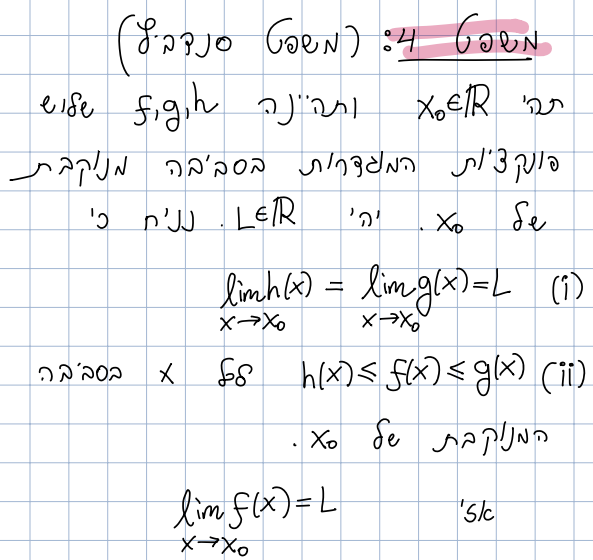 משפט 4: (משפט סנדביץ')
תהי x₀∈ℝ ותהיינה f,g,h שלוש
פונקציות המוגדרות בסביבה מנוקבת
של x₀. יהי L∈ℝ. נניח כי
(i) lim_{x→x₀} h(x) = lim_{x→x₀} g(x) = L
(ii) h(x) ≤ f(x) ≤ g(x) לכל x בסביבה
המנוקבת של x₀.
אזי lim_{x→x₀} f(x) = L